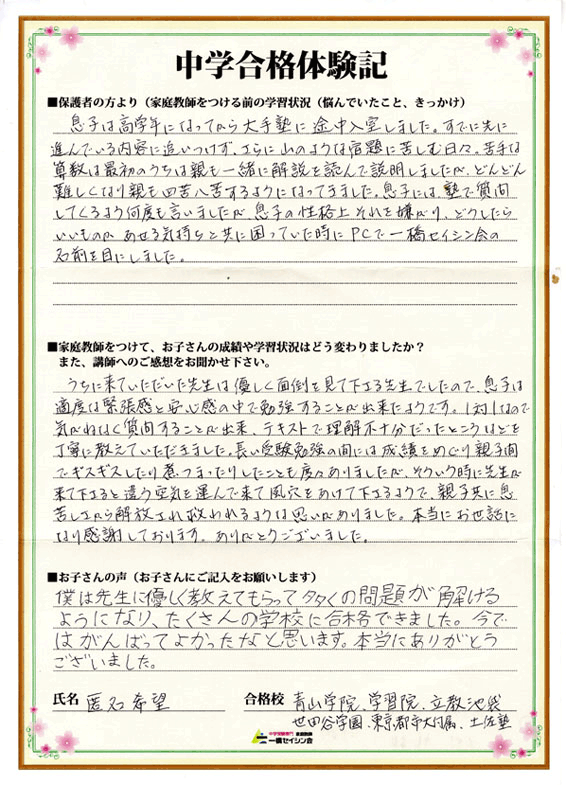 中学合格体験記
■保護者の方より（家庭教師をつける前の学習状況（悩んでいたこと、きっかけ）
息子は高学年になってから大手塾に途中入室しました。すでに先に
進んでいる内容に追いつけず、さらに山のような宿題に苦しむ日々。苦手な
算数は最初のうちは親も一緒に解説を読んで説明しましたが、どんどん
難しくなり親も四苦八苦するようになってきました。息子には、塾で質問
してくるよう何度も言いましたが、息子の性格上それを嫌がり、どうしたら
いいものか あせる気持ちと共に困っていた時にPCで一橋セイシン会の
名前を目にしました。
■家庭教師をつけて、お子さんの成績や学習状況はどう変わりましたか？
また、講師へのご感想をお聞かせ下さい。
うちに来ていただいた先生は優しく面倒を見て下さる先生でしたので、息子は
適度な緊張感と安心感の中で勉強することが出来たようです。1対1なので
気がねなく質問することが出来、テキストで理解不十分だったところなどを
丁寧に教えていただきました。長い受験勉強の間には成績をめぐり親子間
でギスギスしたり煮つまったりしたことも度々ありましたが、そういう時に先生が
来て下さると違う空気を運んで来て風穴をあけて下さるようで、親子共に息
苦しさから解放され救われるような思いがありました。本当にお世話に
なり感謝しております。ありがとうございました。
■お子さんの声（お子さんにご記入をお願いします）
僕は先生に優しく教えてもらって多くの問題が解ける
ようになり、たくさんの学校に合格できました。今で
はがんばってよかったなと思います。本当にありがとう
ございました。
氏名 匿名希望 合格校 青山学院、学習院、立教池袋
世田谷学園、東京都市大付属、土佐塾
中学受験専門 家庭教師
一橋セイシン会